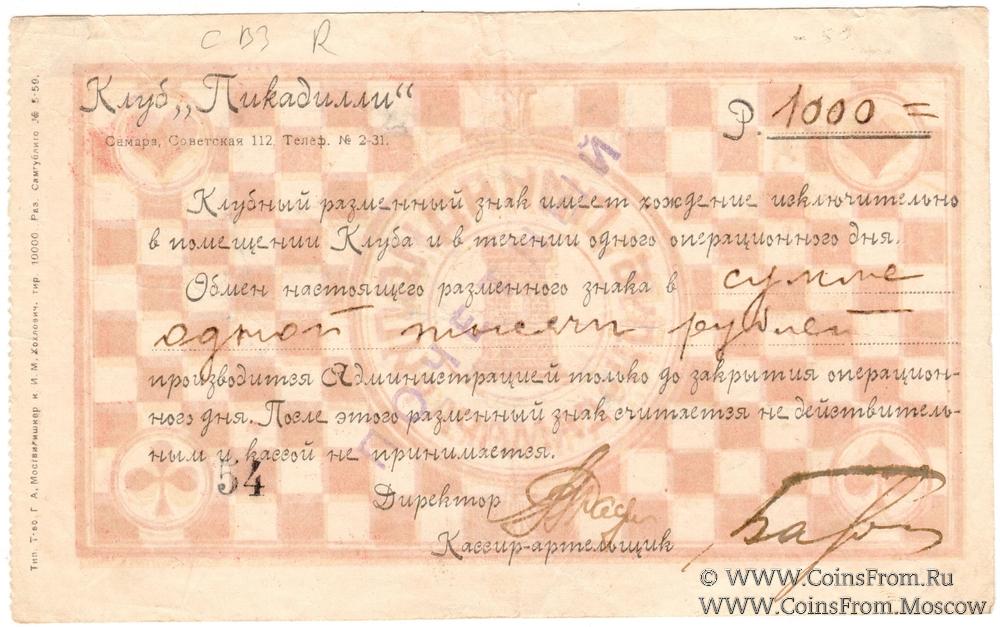 С В З R
Клуб „Пикадилли“
Самара, Советская 112. Телеф. № 2-31.
Р. 1000 =
Клубный разменный знак имеет хождение исключительно
в помещении Клуба и в течении одного операционного дня.
Обмен настоящего разменного знака в сумме
одной тысячи рублей
производится Администрацией только до закрытия операцион-
ного дня. После этого разменный знак считается не действитель-
ным и кассой не принимается.
54
Директор
Кассир-артельщик
Тип. Т-во. Г. А. Мосгвилишкер и И. М. Хохлович. тир. 10000 Раз. Самгублито № 5-59.
© WWW.CoinsFrom.Ru
WWW.CoinsFrom.Moscow